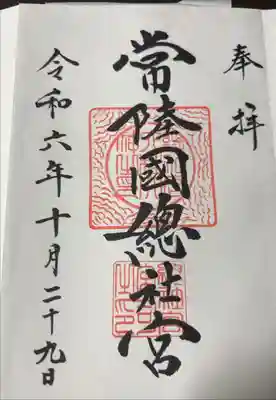 奉拝
常陸國總社宮
令和六年十月二十九日